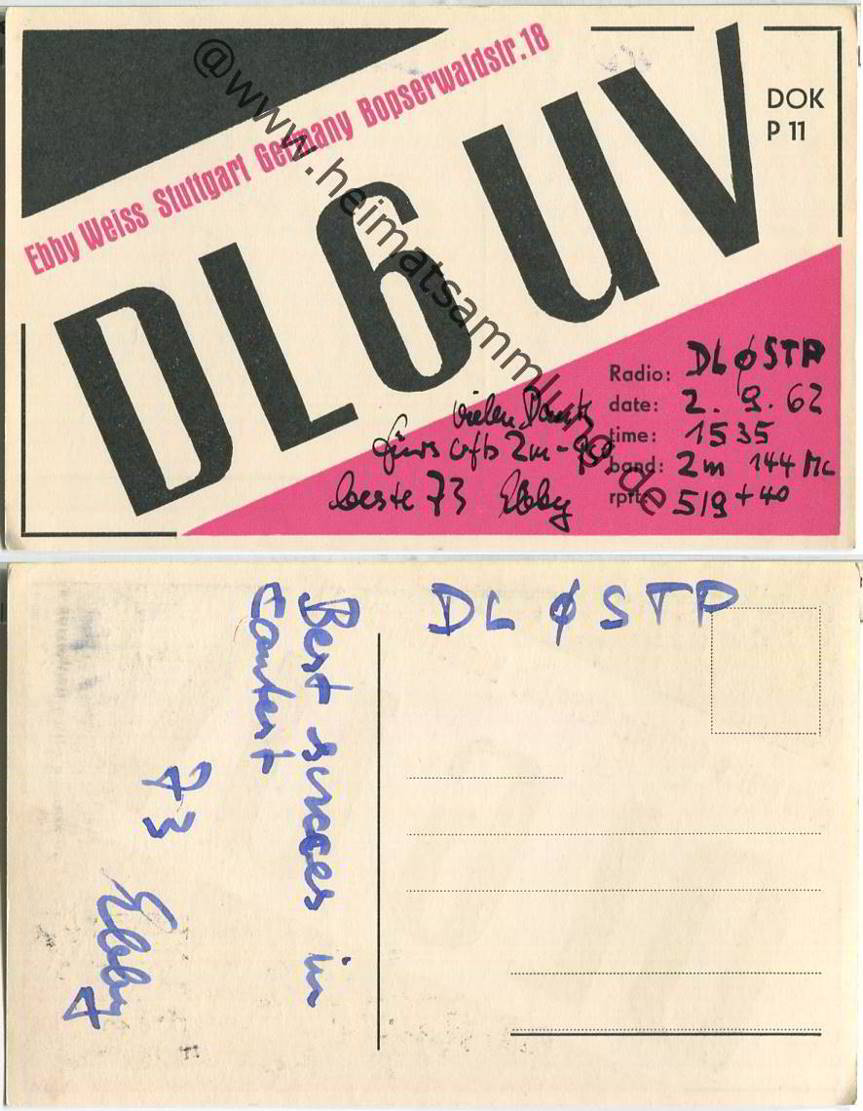 Ebby Weiss Stuttgart Germany Bopserwaldstr. 18
DOK
P 11
DL6UV
@www.heimatsammlung.de
Radio: DLØSTP
date: 2. 9. 62
time: 1535
band: 2m 144 Mc
rprt: 5/9 + 40
vielen Dank
fürs 2m-
beste 73 Ebby
DL Ø STP
Best succes in
contest
73
Ebby